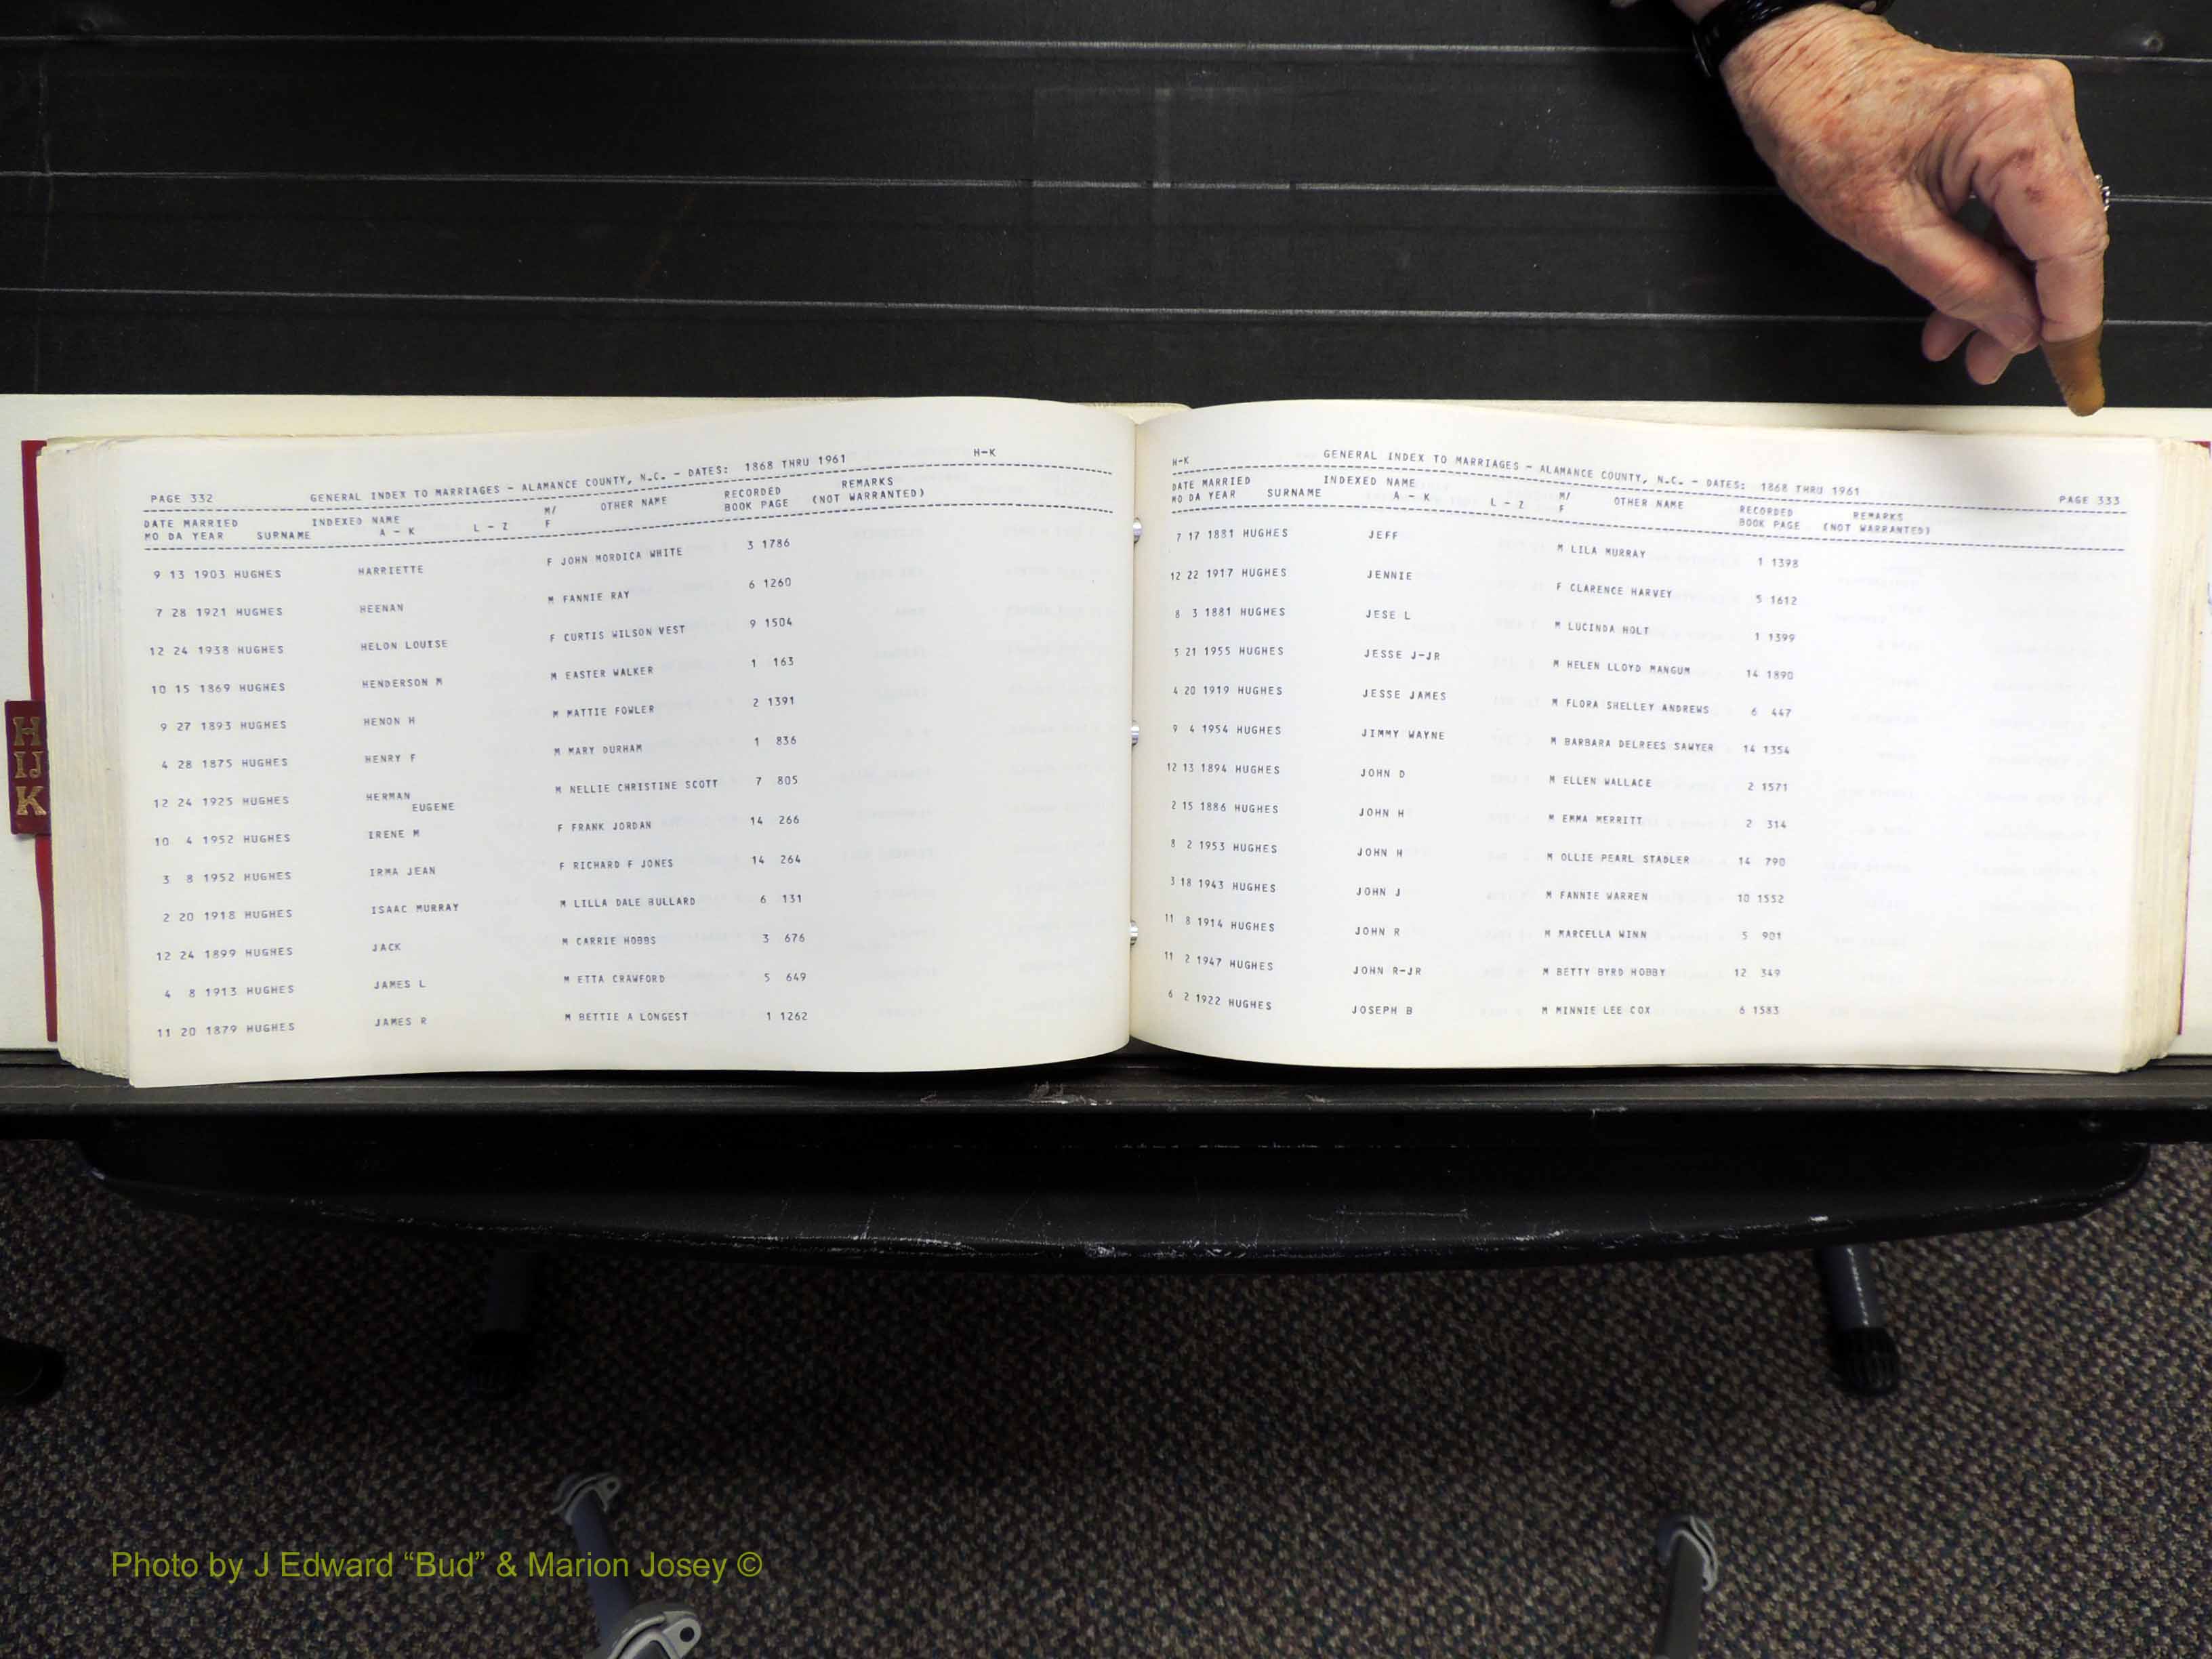 H
IJ
K
PAGE 332 GENERAL INDEX TO MARRIAGES - ALAMANCE COUNTY, N.C. - DATES: 1868 THRU 1961 H-K
DATE MARRIED INDEXED NAME M/ OTHER NAME RECORDED REMARKS
MO DA YEAR SURNAME A - K L - Z F BOOK PAGE (NOT WARRANTED)
9 13 1903 HUGHES HARRIETTE F JOHN MORDICA WHITE 3 1786
7 28 1921 HUGHES HEENAN M FANNIE RAY 6 1260
12 24 1938 HUGHES HELON LOUISE F CURTIS WILSON VEST 9 1504
10 15 1869 HUGHES HENDERSON M M EASTER WALKER 1 163
9 27 1893 HUGHES HENON H M MATTIE FOWLER 2 1391
4 28 1875 HUGHES HENRY F M MARY DURHAM 1 836
12 24 1925 HUGHES HERMAN M NELLIE CHRISTINE SCOTT 7 805
EUGENE
10 4 1952 HUGHES IRENE M F FRANK JORDAN 14 266
3 8 1952 HUGHES IRMA JEAN F RICHARD F JONES 14 264
2 20 1918 HUGHES ISAAC MURRAY M LILLA DALE BULLARD 6 131
12 24 1899 HUGHES JACK M CARRIE HOBBS 3 676
4 8 1913 HUGHES JAMES L M ETTA CRAWFORD 5 649
11 20 1879 HUGHES JAMES R M BETTIE A LONGEST 1 1262
H-K GENERAL INDEX TO MARRIAGES - ALAMANCE COUNTY, N.C. - DATES: 1868 THRU 1961 PAGE 333
DATE MARRIED INDEXED NAME M/ OTHER NAME RECORDED REMARKS
MO DA YEAR SURNAME A - K L - Z F BOOK PAGE (NOT WARRANTED)
7 17 1881 HUGHES JEFF M LILA MURRAY 1 1398
12 22 1917 HUGHES JENNIE F CLARENCE HARVEY 5 1612
8 3 1881 HUGHES JESE L M LUCINDA HOLT 1 1399
5 21 1955 HUGHES JESSE J-JR M HELEN LLOYD MANGUM 14 1890
4 20 1919 HUGHES JESSE JAMES M FLORA SHELLEY ANDREWS 6 447
9 4 1954 HUGHES JIMMY WAYNE M BARBARA DELREES SAWYER 14 1354
12 13 1894 HUGHES JOHN D M ELLEN WALLACE 2 1571
2 15 1886 HUGHES JOHN H M EMMA MERRITT 2 314
8 2 1953 HUGHES JOHN H M OLLIE PEARL STADLER 14 790
3 18 1943 HUGHES JOHN J M FANNIE WARREN 10 1552
11 8 1914 HUGHES JOHN R M MARCELLA WINN 5 901
11 2 1947 HUGHES JOHN R-JR M BETTY BYRD HOBBY 12 349
6 2 1922 HUGHES JOSEPH B M MINNIE LEE COX 6 1583
Photo by J Edward “Bud” & Marion Josey ©